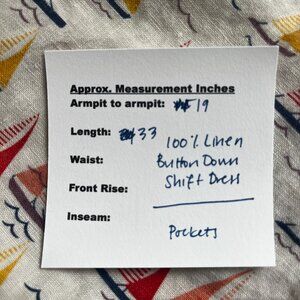 Approx. Measurement Inches
Armpit to armpit: 19
Length: 33
100% Linen
Waist: Button Down
Front Rise: Shift Dress
Inseam:
Pockets